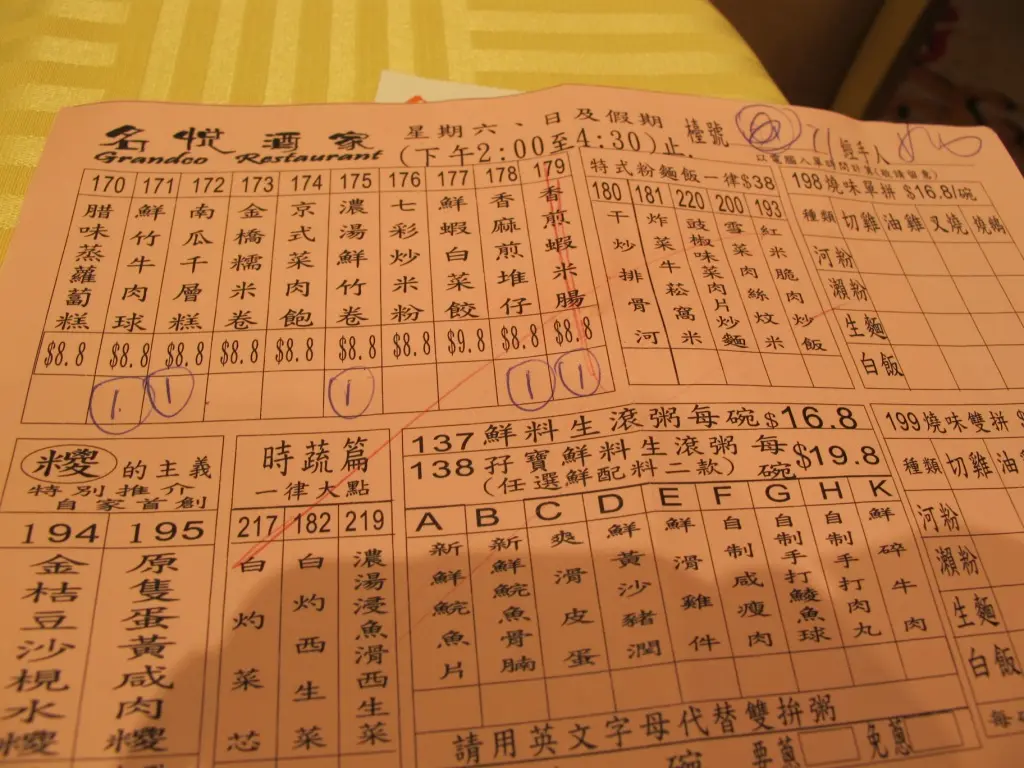 名悅酒家
Grandoo Restaurant
星期六、日及假期
(下午2:00至4:30)止.
檯號
71
經手人
170 171 172 173 174 175 176 177 178 179
臘味蒸蘿蔔糕
鮮竹牛肉球
南瓜千層糕
金橋糯米卷
京式菜肉飽
濃湯鮮竹卷
七彩炒米粉
鮮蝦白菜餃
香麻煎堆仔
香煎蝦米腸
$8.8 $8.8 $8.8 $8.8 $8.8 $8.8 $8.8 $9.8 $8.8 $8.8
1 1 1 1 1
特式粉麵飯一律$38
180 181 220 200 193
干炒排骨河
炸菜牛菘窩米
豉椒味菜肉片炒麵
雪菜肉絲炆米
紅米脆肉炒飯
198燒味單拼 $16.8/碗
種類 切雞 油雞 叉燒 燒鵝
河粉
瀨粉
生麵
白飯
糭的主義
特別推介
自家首創
194 195
金桔豆沙梘水糭
原隻蛋黃咸肉糭
時蔬篇
一律大點
217 182 219
白灼菜芯
白灼西生菜
濃湯浸魚滑西生菜
137 鮮料生滾粥每碗$16.8
138 孖寶鮮料生滾粥每碗$19.8
(任選鮮配料二款)
A B C D E F G H K
新鮮鯇魚片
新鮮鯇魚骨腩
爽滑皮蛋
鮮黃沙豬潤
鮮滑雞件
自制咸瘦肉
自制手打鯪魚球
自制手打肉丸
鮮碎牛肉
請用英文字母代替雙拚粥
碗 要蔥 免蔥
199燒味雙拼 $
種類 切雞 油
河粉
瀨粉
生麵
白飯
每